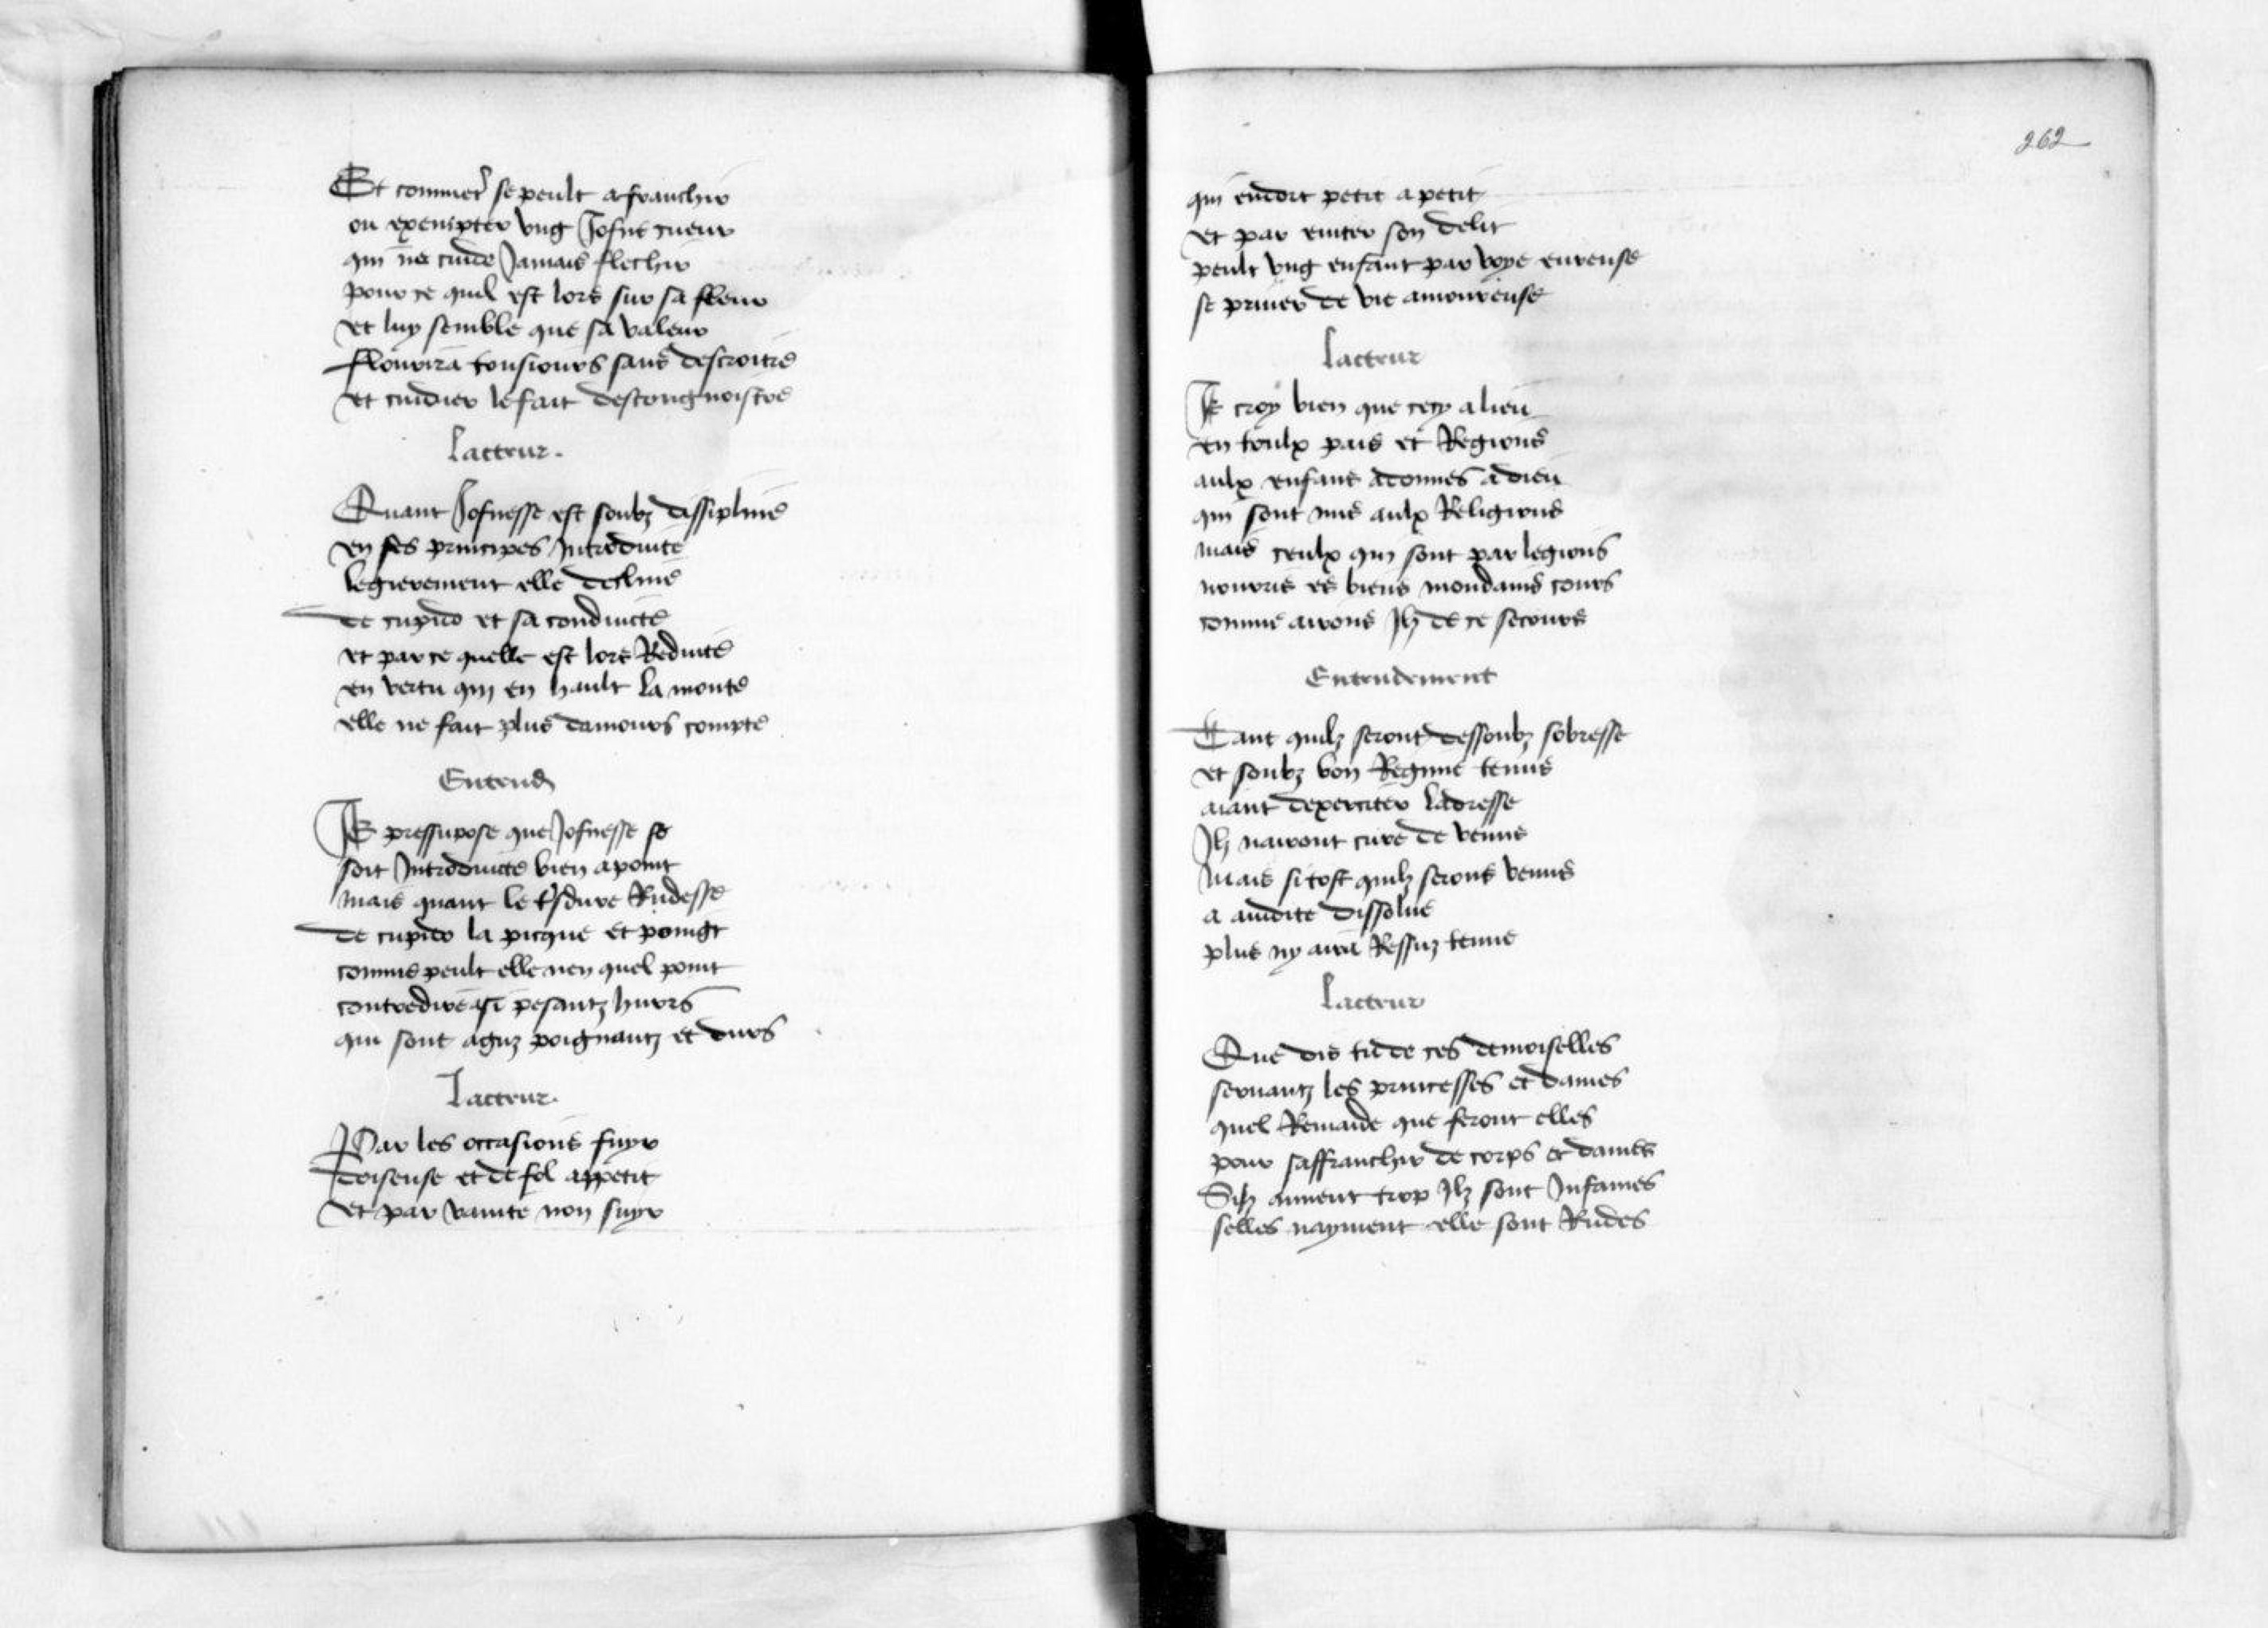 Et comment se peult afranchir
ou exempter ung Jofne cueur
qui ne cuide Jamais flechir
pour ce quil est lors sur sa fleur
et luy semble que sa valeur
flourira tousiours sans descroitre
et cuidier le fait descongnoistre
lacteur.
Quant Jofnesse est soubz dissipline
en ses principes Introduite
legierement elle decline
de cupido et sa conduicte
et par ce quelle est lors Reduite
en vertu qui en hault la monte
elle ne fait plus damours compte
Entend
Je pressupose que Jofnesse
soit Introduicte bien apoint
mais quant le dure Rudesse
de cupido la picque et poingt
comme peult elle nen quel point
contredire a si pesantz hurs
qui sont aguz poignantz et durs
lacteur.
Par les occasions fuyr
doiseuse et de fol appetit
et par vanite non suyr
262
qui endort petit a petit
et par euiter son delit
peult ung enfant par voye eureuse
se priuer de vie amoureuse
lacteur
Je croy bien que cecy a lieu
en toulx pais et Regions
aulx enfans adonnes a dieu
qui sont mis aulx Religions
mais ceulx qui sont par legions
nouris es biens mondains cours
comme airons Ilz de ce secours
Entendement
Tant quilz seront dessoubz sobresse
et soubz bon Regime tenus
aiant dexerciter ladresse
Ilz nairont cure de venus
Mais si tost quilz seront venus
a auidite dissolue
plus ny aira Reffuz tenue
lacteur
Que dis tu de ces demoiselles
seruantz les princesses et dames
quel Remaide que feront elles
pour saffranchir de corps et dames
Silz aiment trop Ilz sont Infames
selles nayment elle sont Rudes